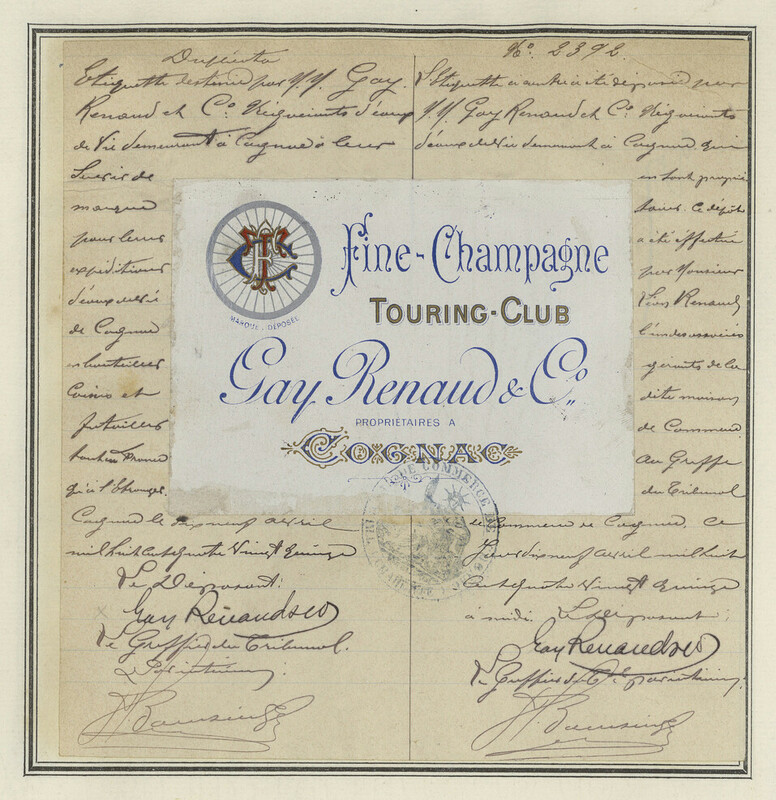 Duplicata
Etiquette destinée par MM. Gay
Renaud et Co. Négociants d'eaux
de Vie demeurant à Cognac à leur
Servir de
marque
pour leurs
expéditions
d'eaux de vie
de Cognac
en bouteilles
Caisses et
futailles
tant en France
qu'à l'Etranger.
Cognac le dix neuf avril
mil huit cent quatre Vingt quinze
Le Déposant:
Gay Renaud & Co
Le Greffier du Tribunal.
No. 2392.
L'Etiquette ci contre a été déposée par
MM. Gay Renaud et Co. Négociants
d'eaux de Vie demeurant à Cognac, qui
en sont proprié
taires. Ce dépôt
a été effectué
par Monsieur
Léon Renaud
l'un des associés
gérants de la
dite maison
de Commerce
au Greffe
du Tribunal
de Commerce de Cognac. Ce
Jour dix neuf avril mil huit
Cent quatre Vingt quinze
à midi. Le Déposant:
Gay Renaud & Co
Le Greffier
MARQUE DÉPOSÉE
Fine-Champagne
TOURING-CLUB
Gay Renaud & Co.
PROPRIÉTAIRES A
COGNAC
DE COMMERCE DE